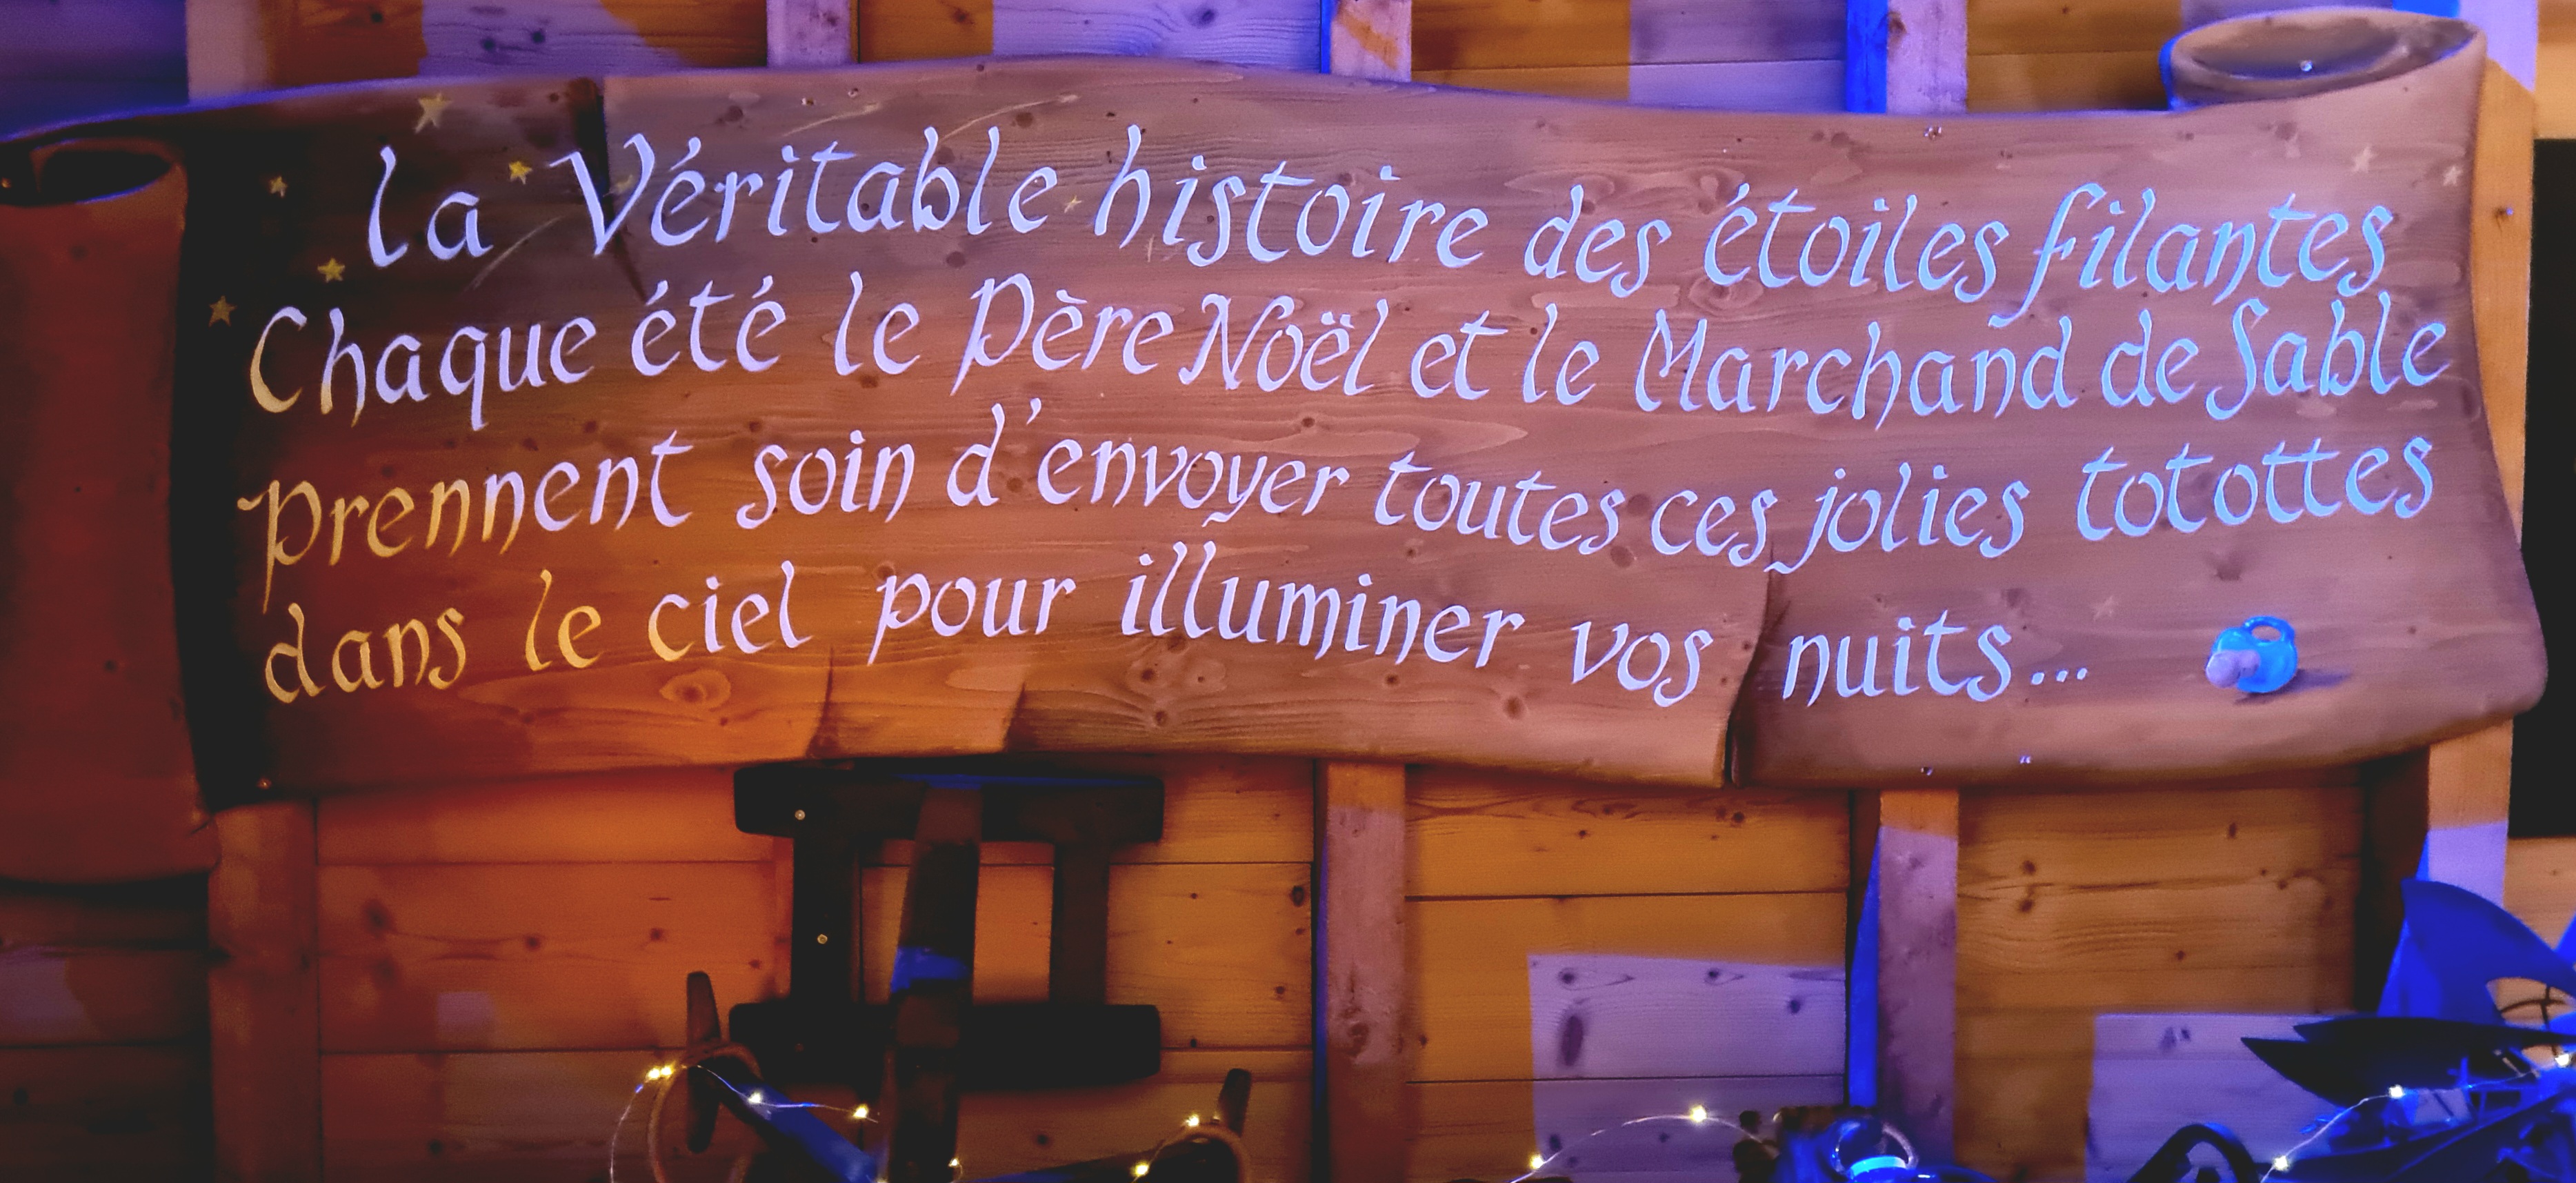 la Véritable histoire des étoiles filantes
Chaque été le Père Noël et le Marchand de Sable
prennent soin d'envoyer toutes ces jolies totottes
dans le ciel pour illuminer vos nuits...